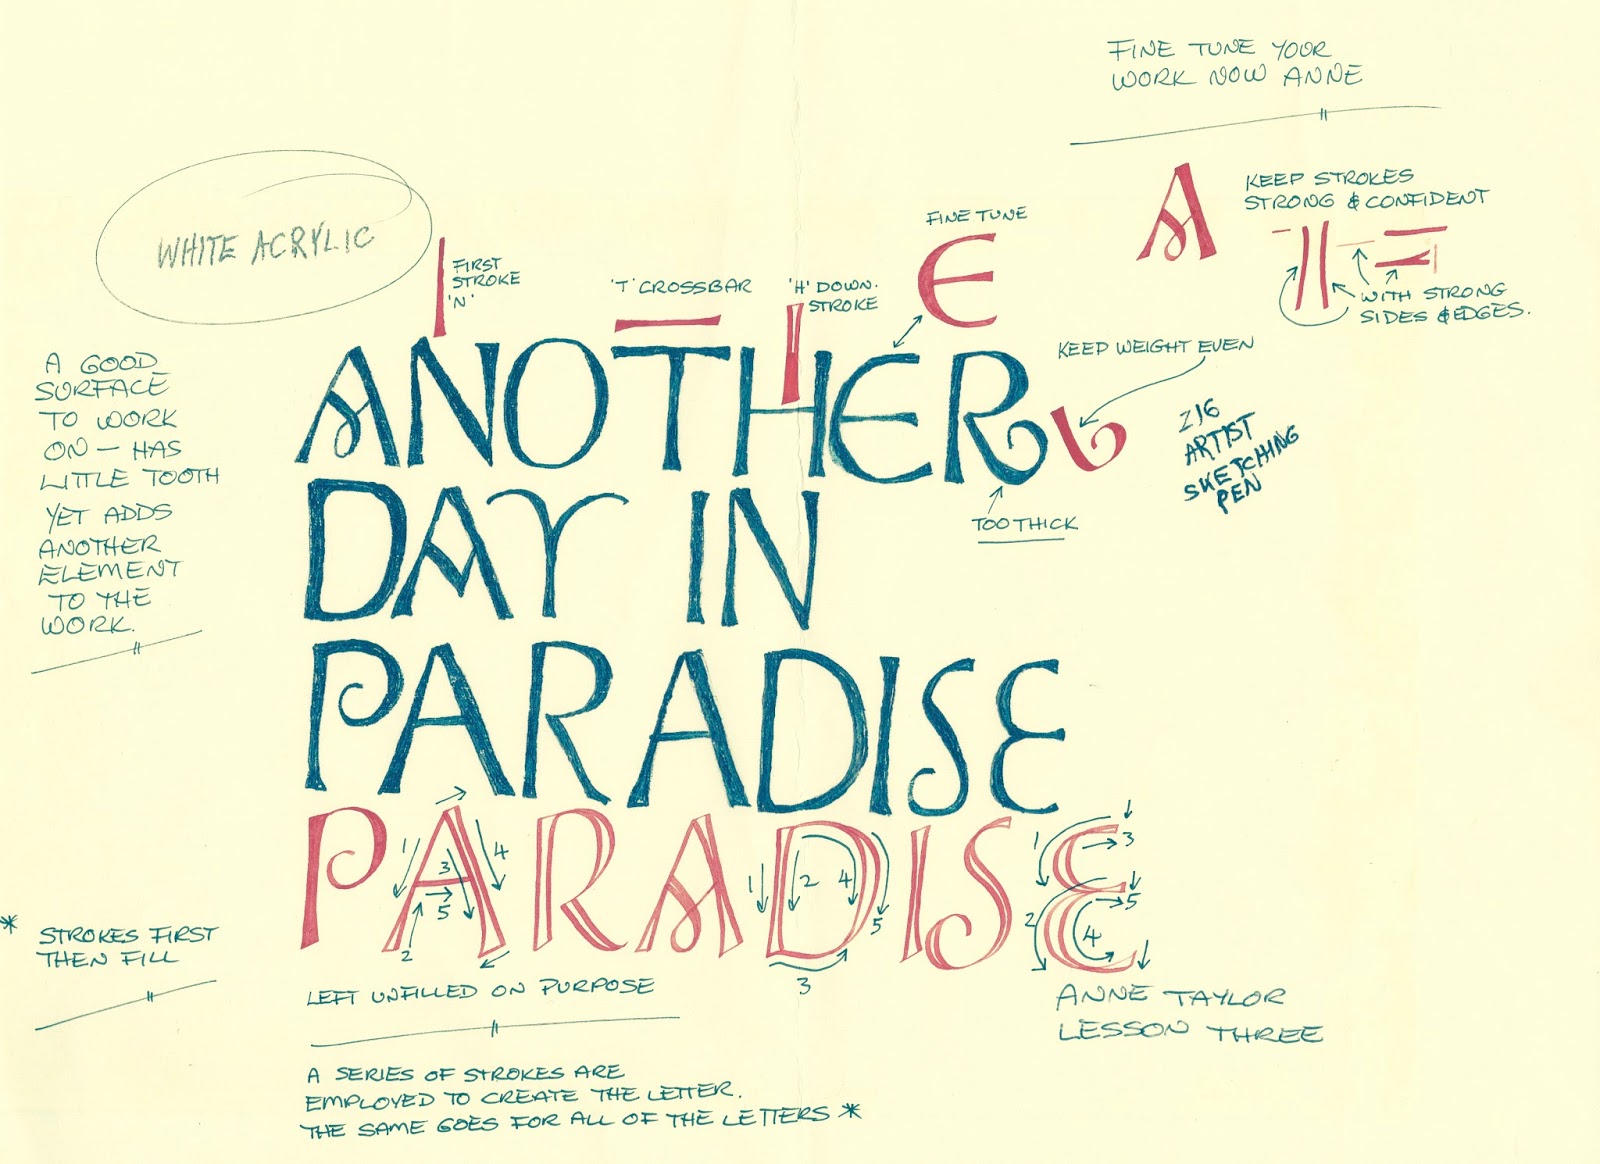 FINE TUNE YOUR
WORK NOW ANNE
WHITE ACRYLIC
FIRST
STROKE
'N'
'T' CROSSBAR
'H' DOWN.
STROKE
FINE TUNE
E
A
KEEP STROKES
STRONG & CONFIDENT
WITH STRONG
SIDES & EDGES.
KEEP WEIGHT EVEN
ZIG
ARTIST
SKETCHING
PEN
TOO THICK
A GOOD
SURFACE
TO WORK
ON – HAS
LITTLE TOOTH
YET ADDS
ANOTHER
ELEMENT
TO THE
WORK.
ANOTHER
DAY IN
PARADISE
PARADISE
1 2 3 4 5
1 2 3 4 5
1 2 3 4 5
* STROKES FIRST
THEN FILL
LEFT UNFILLED ON PURPOSE
ANNE TAYLOR
LESSON THREE
A SERIES OF STROKES ARE
EMPLOYED TO CREATE THE LETTER.
THE SAME GOES FOR ALL OF THE LETTERS *